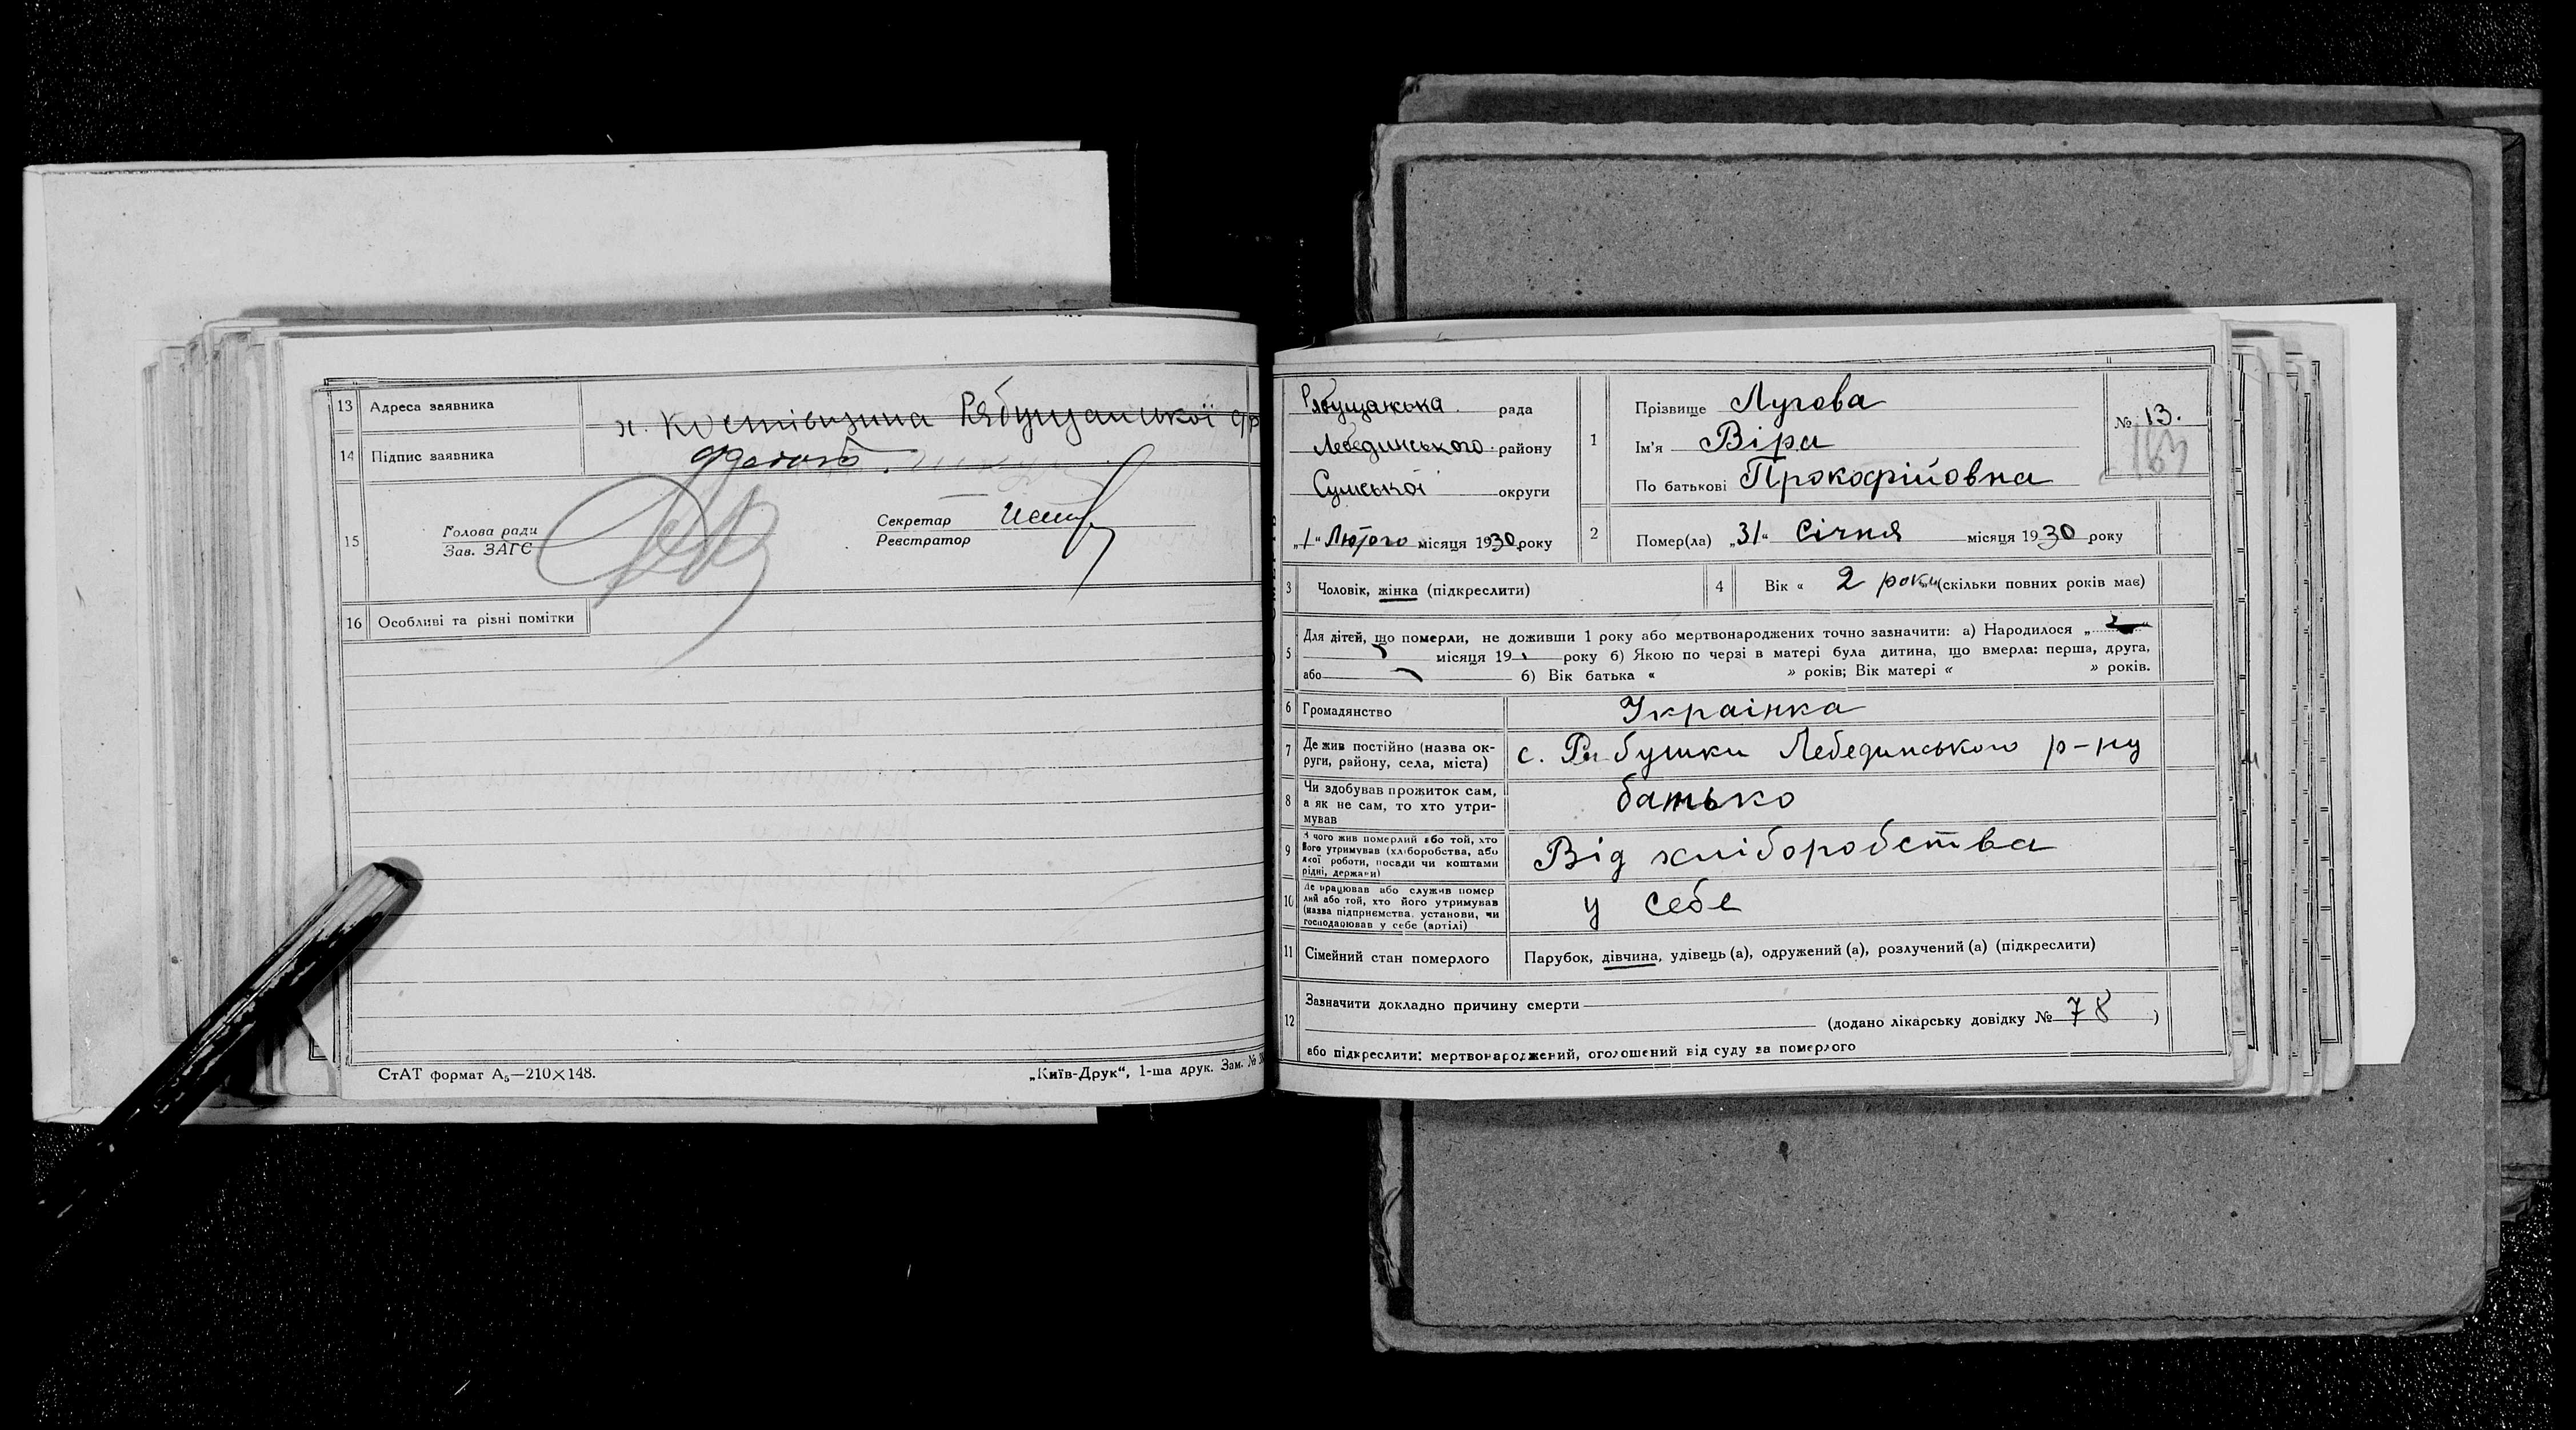 13 Адреса заявника х. Костівщина Рябущанської с/р
14 Підпис заявника
15 Голова ради
Зав. ЗАГС
Секретар
Реєстратор
16 Особливі та різні помітки
СтАТ формат А₅—210×148.
„Київ-Друк“, 1-ша друк. Зам. №
Рябущанська рада
Лебединського району
Сумської округи
„1“ Лютого місяця 1930 року
1 Прізвище Лугова
Ім'я Віра
По батькові Прокофійовна
№ 13.
163
2 Помер(ла) „31“ Січня місяця 1930 року
3 Чоловік, жінка (підкреслити)
4 Вік « 2 роки (скільки повних років має)
5 Для дітей, що померли, не доживши 1 року або мертвонароджених точно зазначити: а) Народилося „
місяця 19 року б) Якою по черзі в матері була дитина, що вмерла: перша, друга,
або б) Вік батька « » років; Вік матері « » років.
6 Громадянство Українка
7 Де жив постійно (назва ок-
руги, району, села, міста) с. Рябушки Лебединського р-ну
8 Чи здобував прожиток сам,
а як не сам, то хто утри-
мував батько
9 З чого жив померлий або той, хто
його утримував (хліборобства, або
якої роботи, посади чи коштами
рідні, держави) Від хліборобства
10 Де працював або служив помер
лий або той, хто його утримував
(назва підприємства, установи, чи
господарював у себе (артілі) у себе
11 Сімейний стан померлого Парубок, дівчина, удівець (а), одружений (а), розлучений (а) (підкреслити)
12 Зазначити докладно причину смерти
(додано лікарську довідку № 78 )
або підкреслити: мертвонароджений, оголошений від суду за померлого